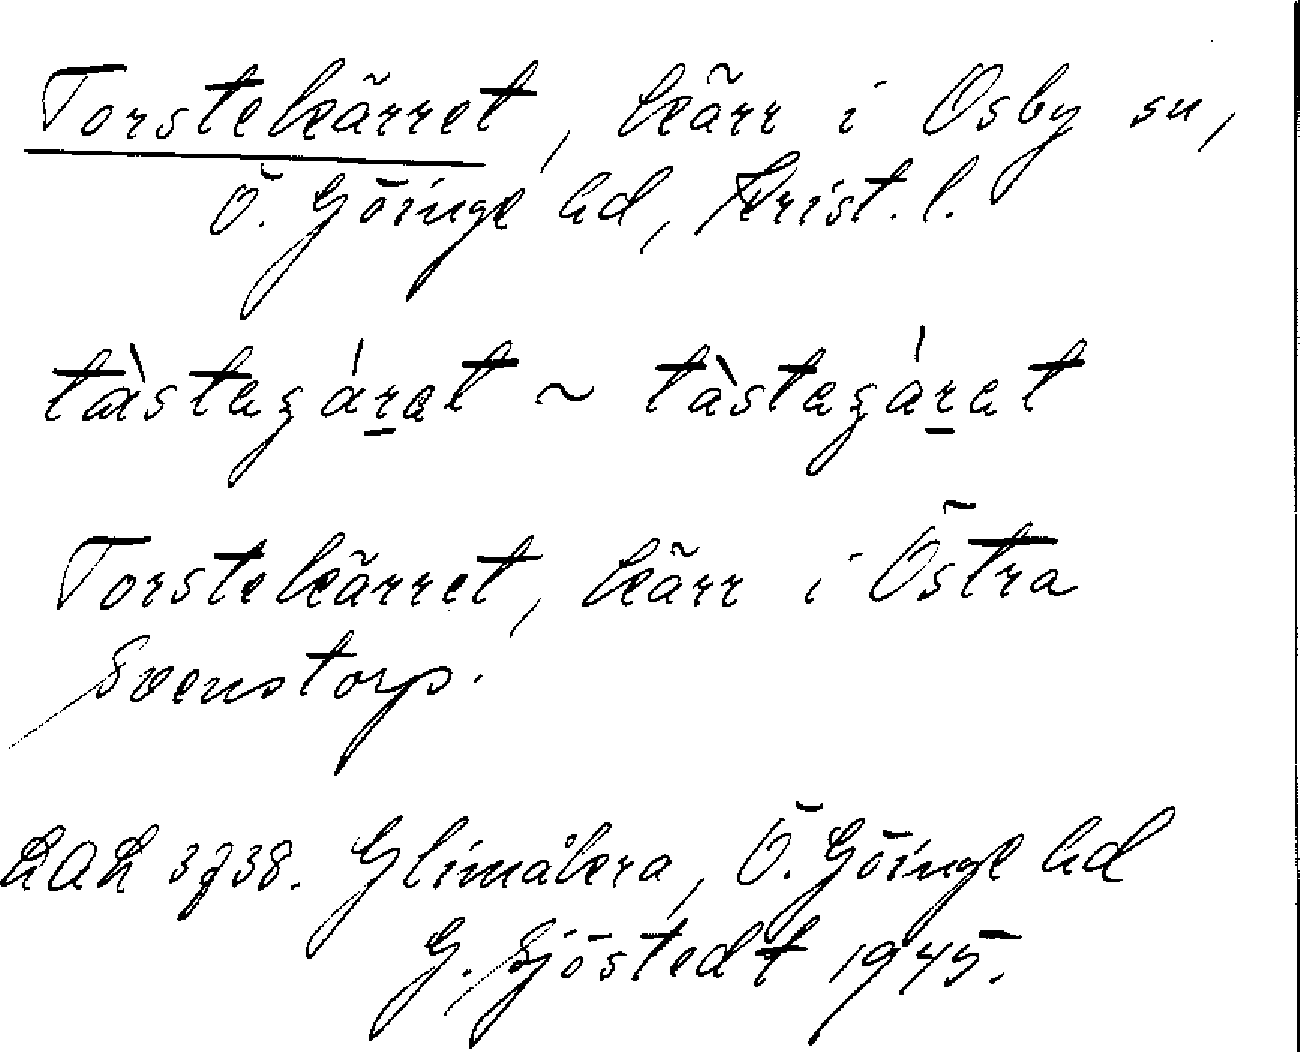 Torstekärret, kärr i Osby sn,
Ö. Göinge hd, Krist. l.
tàstegáret ~ tàstegáret
Torstekärret, kärr i Östra
Svenstorp.
LAL 3738. Glimåkra, Ö. Göinge hd
G. Sjöstedt 1945.